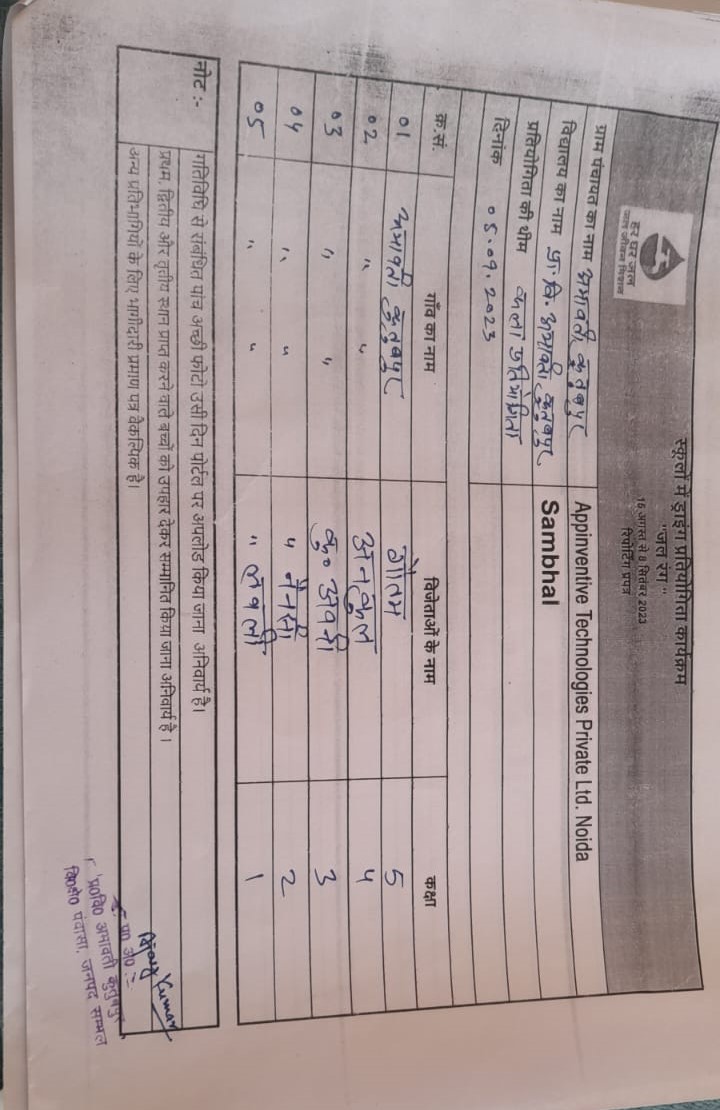 हर घर जल
जल जीवन मिशन
स्कूलों में ड्राइंग प्रतियोगिता कार्यक्रम
"जल रंग"
16 अगस्त से 8 सितंबर 2023
रिपोर्टिंग प्रपत्र
ग्राम पंचायत का नाम अमावती कुतुबपुर Appinventive Technologies Private Ltd. Noida
विद्यालय का नाम प्रा. वि. अमावती कुतुबपुर Sambhal
प्रतियोगिता की थीम कला प्रतियोगिता
दिनांक 05.09.2023
क्र.सं. गाँव का नाम विजेताओं के नाम कक्षा
01 अमावती कुतुबपुर गौतम 5
02 " " अनुकुल 4
03 " " कु० अवनी 3
04 " " " नैनसी 2
05 " " " लवली 1
नोट :- गतिविधि से संबंधित पांच अच्छी फोटो उसी दिन पोर्टल पर अपलोड किया जाना अनिवार्य है।
प्रथम, द्वितीय और तृतीय स्थान प्राप्त करने वाले बच्चों को उपहार देकर सम्मानित किया जाना अनिवार्य है।
अन्य प्रतिभागियों के लिए भागीदारी प्रमाण पत्र वैकल्पिक है।
Kumar
प्र० अ०
प्रा०वि० अमावती कुतुबपुर
वि०क्षे० पंवासा, जनपद सम्भल